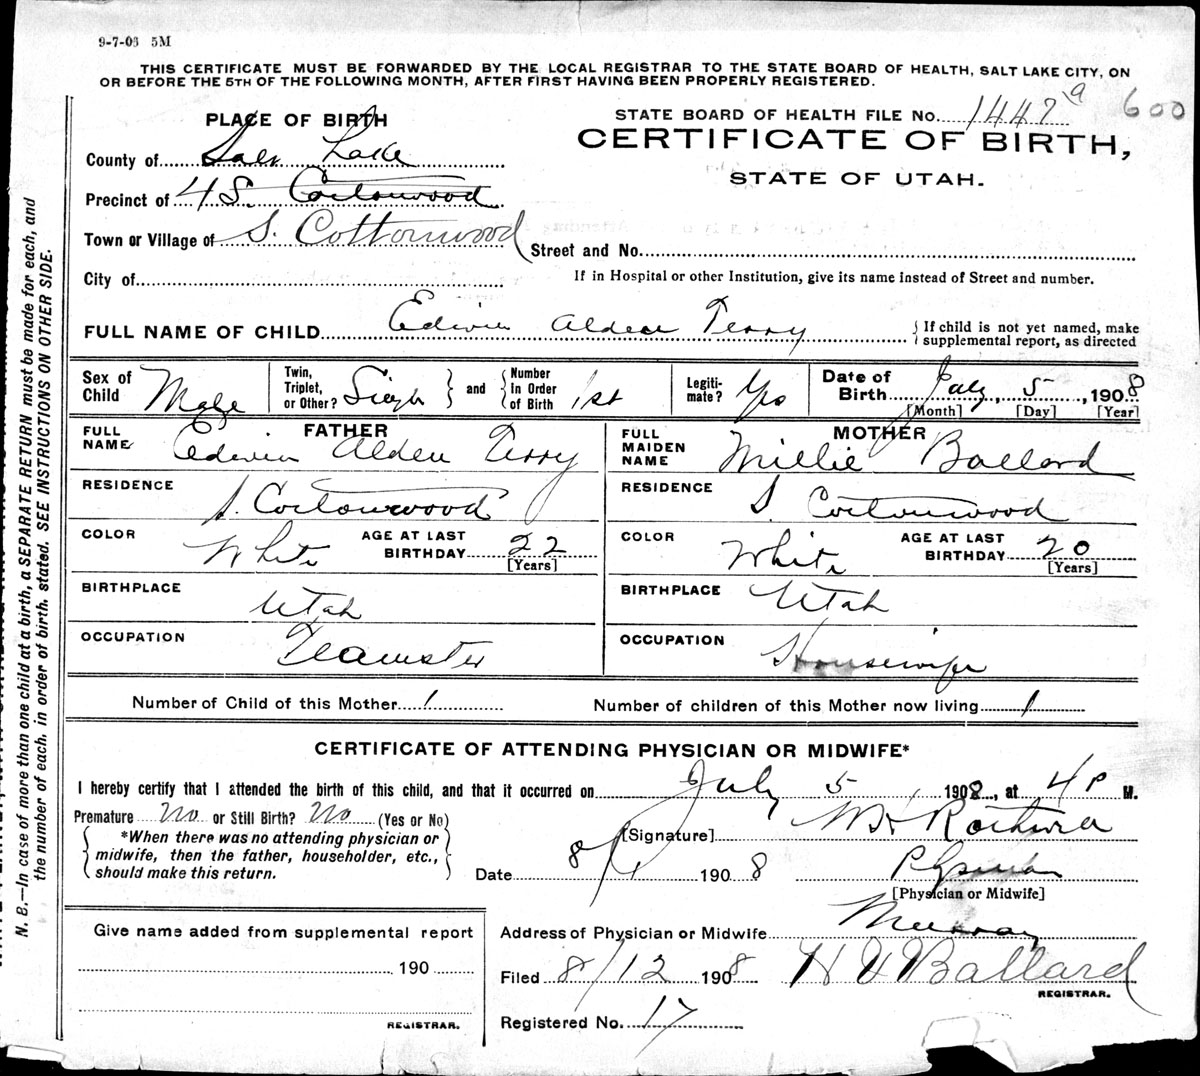 9-7-03 5M
THIS CERTIFICATE MUST BE FORWARDED BY THE LOCAL REGISTRAR TO THE STATE BOARD OF HEALTH, SALT LAKE CITY, ON
OR BEFORE THE 5TH OF THE FOLLOWING MONTH, AFTER FIRST HAVING BEEN PROPERLY REGISTERED.
STATE BOARD OF HEALTH FILE No. 1447 19 600
CERTIFICATE OF BIRTH,
STATE OF UTAH.
PLACE OF BIRTH
County of Salt Lake
Precinct of 4 S. Cottonwood
Town or Village of S. Cottonwood
Street and No.
City of
If in Hospital or other Institution, give its name instead of Street and number.
FULL NAME OF CHILD Edwin Alden Terry
If child is not yet named, make
supplemental report, as directed
Sex of Child Male
Twin, Triplet, or Other? Single and Number In Order of Birth 1st
Legiti-mate? Yes
Date of Birth July 5, 1908
[Month] [Day] [Year]
FATHER
FULL NAME Edwin Alden Terry
RESIDENCE S. Cottonwood
COLOR White AGE AT LAST BIRTHDAY 22 [Years]
BIRTHPLACE Utah
OCCUPATION Teamster
MOTHER
FULL MAIDEN NAME Millie Ballard
RESIDENCE S. Cottonwood
COLOR White AGE AT LAST BIRTHDAY 20 [Years]
BIRTHPLACE Utah
OCCUPATION Housewife
Number of Child of this Mother 1 Number of children of this Mother now living 1
CERTIFICATE OF ATTENDING PHYSICIAN OR MIDWIFE*
I hereby certify that I attended the birth of this child, and that it occurred on July 5, 1908, at 4 P M.
Premature No or Still Birth? No (Yes or No)
*When there was no attending physician or
midwife, then the father, householder, etc.,
should make this return.
[Signature]
Date 8/4 1908 Physician
[Physician or Midwife]
Address of Physician or Midwife Murray
Filed 8/12 1908 Ballard
REGISTRAR.
Registered No. 17
Give name added from supplemental report
190
REGISTRAR.
N. B.—In case of more than one child at a birth, a SEPARATE RETURN must be made for each, and
the number of each, in order of birth, stated. SEE INSTRUCTIONS ON OTHER SIDE.